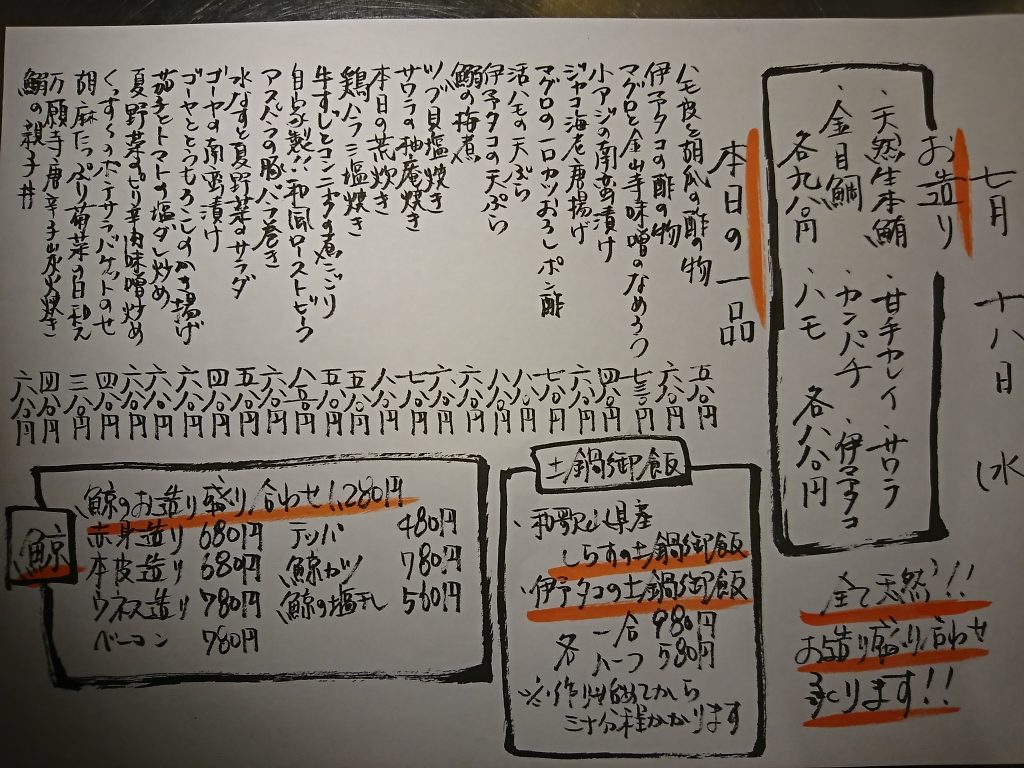 七月 十八日 (水
お造り
・天然生本鮪 ・甘手カレイ ・サワラ
・金目鯛 ・カンパチ ・伊予タコ
各九八〇円 ・ハモ 各八八〇円
全て天然!!
お造り盛り合わせ
承ります!!
本日の一品
ハモ皮と胡瓜の酢の物 五八〇円
伊予タコの酢の物 六八〇円
マグロと金山寺味噌のなめろう 七三〇円
小アジの南蛮漬け 四八〇円
ジャコ海老唐揚げ 六八〇円
マグロの一口カツおろしポン酢 七八〇円
活ハモの天ぷら 八八〇円
伊予タコの天ぷら 八八〇円
鰯の梅煮 六八〇円
ツブ貝塩焼き 六八〇円
サワラの柚庵焼き 七八〇円
本日の荒炊き 八八〇円
鶏ハラミ塩焼き 五八〇円
牛すじとコンニャクの煮こごり 五八〇円
自家製!!和風ローストビーフ 八五〇円
アスパラの豚バラ巻き 六八〇円
水なすと夏野菜のサラダ 五八〇円
ゴーヤの南蛮漬け 四八〇円
ゴーヤととうもろこしのかき揚げ 六八〇円
茄子とトマトの塩ダレ炒め 六八〇円
夏野菜のピリ辛肉味噌炒め 六八〇円
くんすくのポテサラバケットのせ 四八〇円
胡麻たっぷり葡菜の白和え 三八〇円
万願寺唐辛子炭火焼き 四八〇円
鰯の親子丼 六八〇円
土鍋御飯
、和歌山県産
しらすの土鍋御飯
、伊予タコの土鍋御飯
各 一合 980円
ハーフ 580円
※作り始めてから
三十分程かかります
鯨
鯨のお造り盛り合わせ 1,280円
赤身造り 680円 テッパ 480円
本皮造り 680円 鯨カツ 780円
ウネス造り 780円 鯨の塩干し 560円
ベーコン 780円